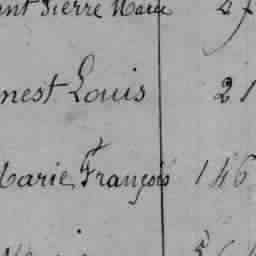 Pierre Marie
nest Louis 21
Marie François 146